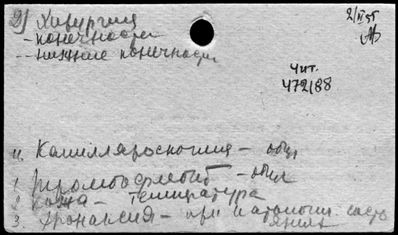 2) Хирургия
- конечности
- нижние конечности
2/II 55
Чит.
472/88
Капилляроскопия - общ
1. Тромбофлебит - общ
2. Кожа - температура
3. Хронаксия - при патологич. состояниях